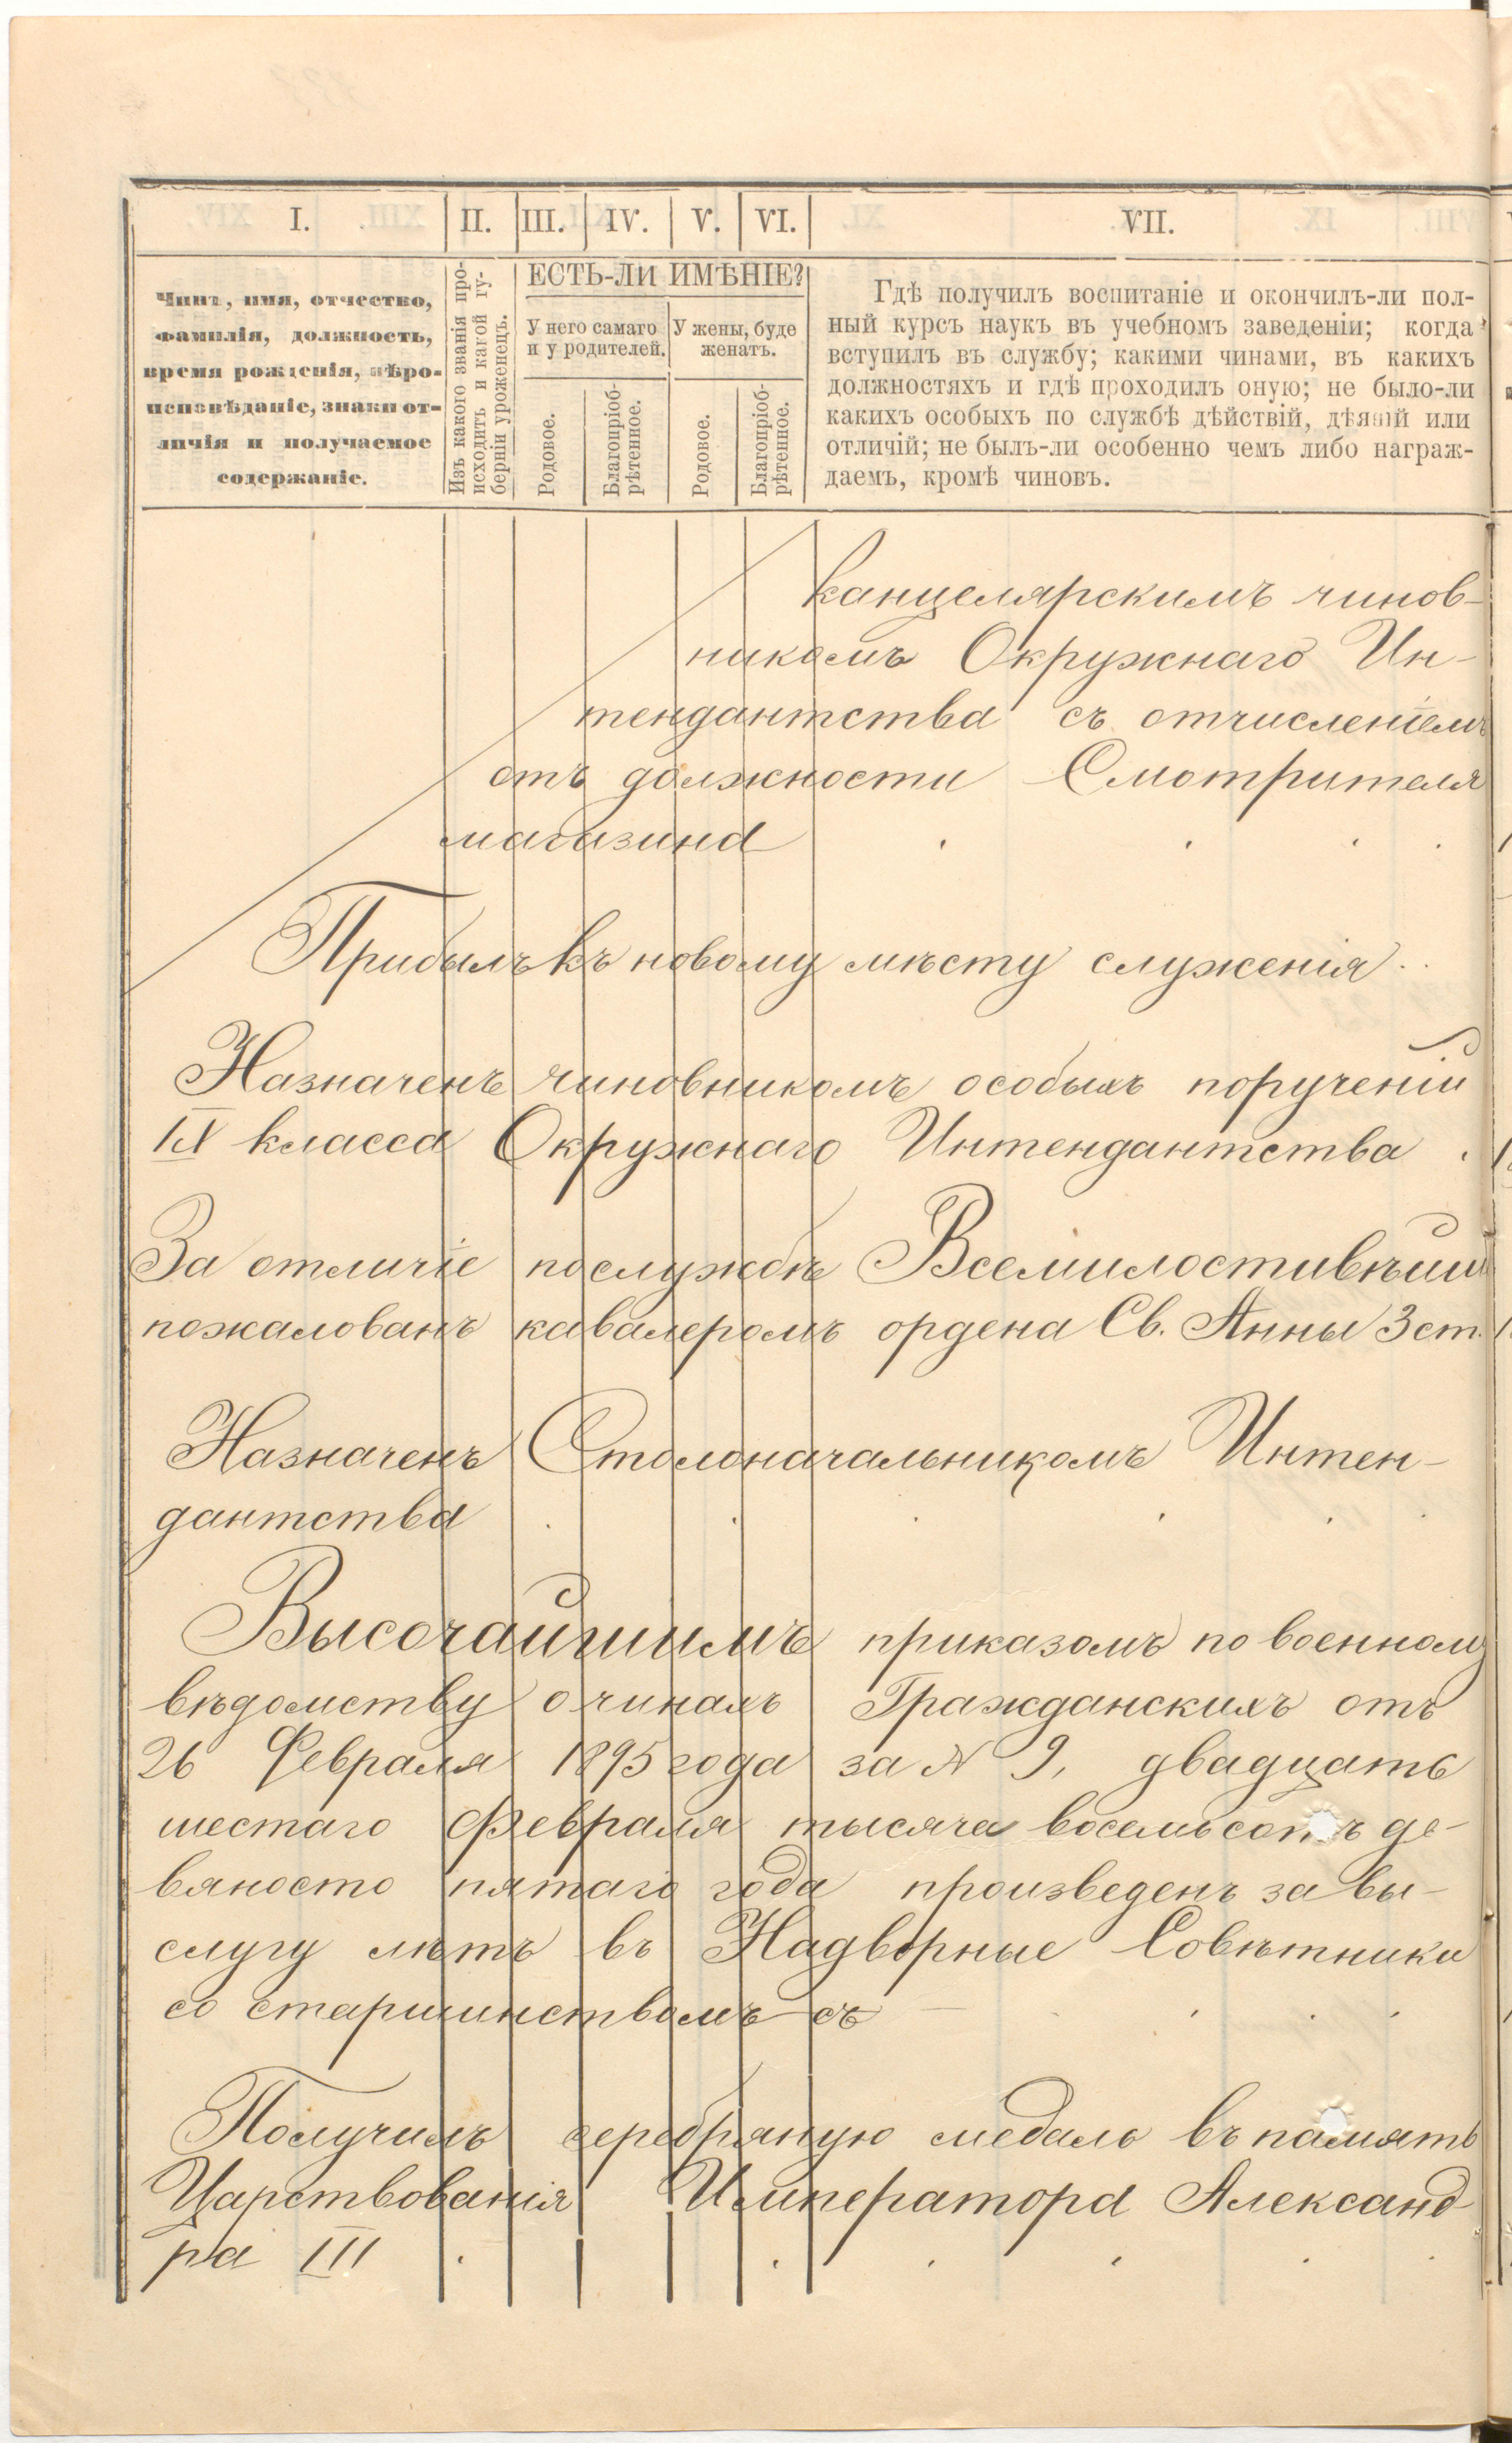 I.
II.
III.
IV.
V.
VI.
VII.
Чинъ, имя, отчество,
фамилія, должность,
время рожденія, вѣро-
исповѣданіе, знаки от-
личія и получаемое
содержаніе.
Изъ какого званія про-
исходитъ и какой гу-
берніи уроженецъ.
ЕСТЬ-ЛИ ИМѢНІЕ?
У него самаго
и у родителей.
У жены, буде
женатъ.
Родовое.
Благопріоб-
рѣтенное.
Родовое.
Благопріоб-
рѣтенное.
Гдѣ получилъ воспитаніе и окончилъ-ли пол-
ный курсъ наукъ въ учебномъ заведеніи; когда
вступилъ въ службу; какими чинами, въ какихъ
должностяхъ и гдѣ проходилъ оную; не было-ли
какихъ особыхъ по службѣ дѣйствій, дѣяній или
отличій; не былъ-ли особенно чемъ либо награж-
даемъ, кромѣ чиновъ.
канцелярскимъ чинов-
никомъ Окружнаго Ин-
тендантства съ отчисленіемъ
отъ должности Смотрителя
магазина
Прибылъ къ новому мѣсту служенія
Назначенъ чиновникомъ особыхъ порученій
IX класса Окружнаго Интендантства
За отличіе по службѣ Всемилостивѣйше
пожалованъ кавалеромъ ордена Св. Анны 3 ст.
Назначенъ Столоначальникомъ Интен-
дантства
Высочайшимъ приказомъ по военному
вѣдомству о чинахъ Гражданскихъ отъ
26 Февраля 1895 года за № 9, двадцать
шестаго Февраля тысяча восемьсотъ де-
вяносто пятаго года произведенъ за вы-
слугу лѣтъ въ Надворные Совѣтники
со старшинствомъ съ
Получилъ серебряную медаль въ память
Царствованія Императора Александ-
ра III